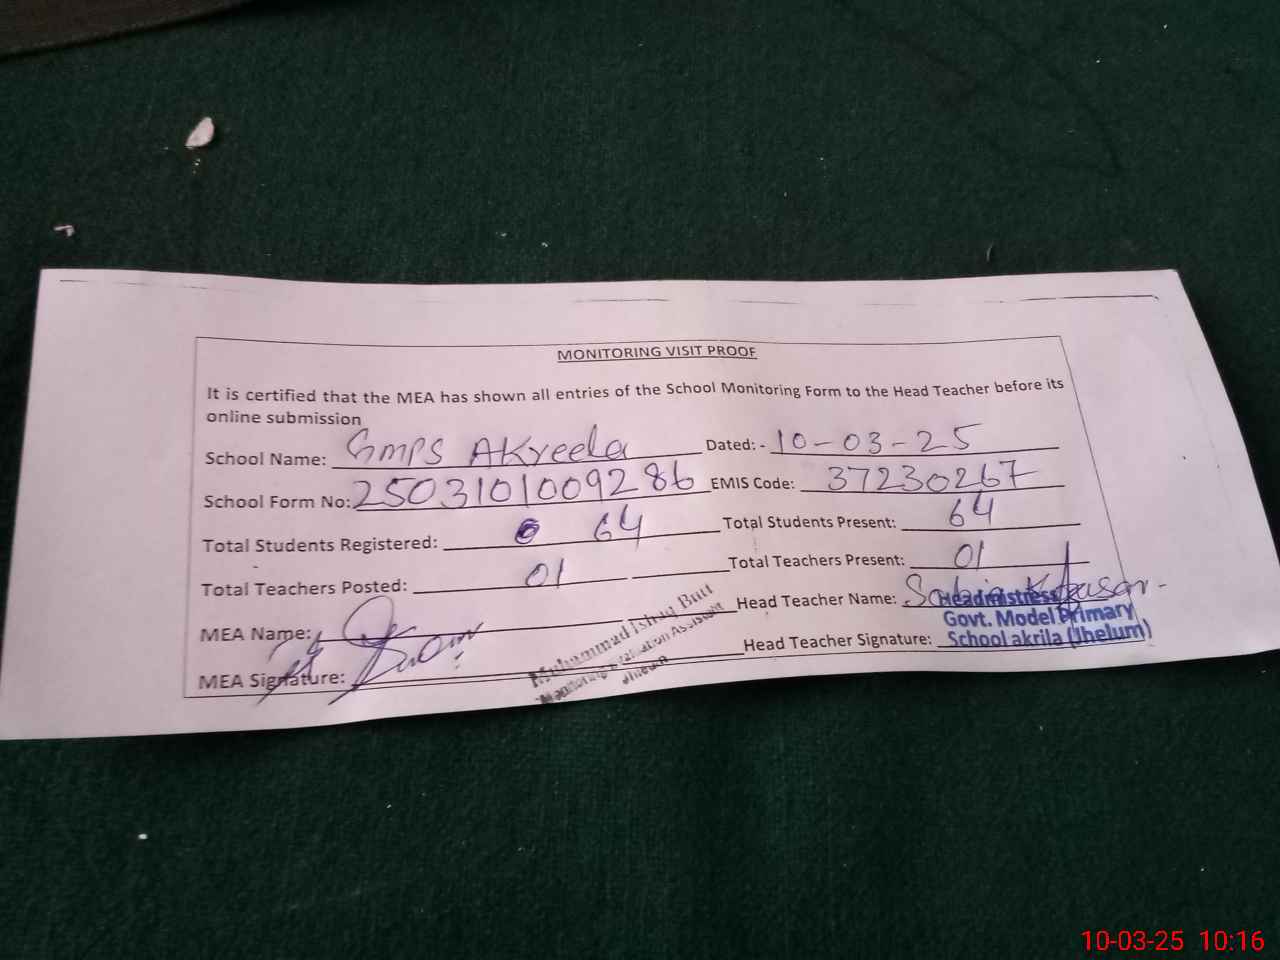 MONITORING VISIT PROOF
It is certified that the MEA has shown all entries of the School Monitoring Form to the Head Teacher before its
online submission
School Name: GMPS AKreela Dated:- 10-03-25
School Form No: 2503101009286 EMIS Code: 37230267
Total Students Registered: 64 Total Students Present: 64
Total Teachers Posted: 01 Total Teachers Present: 01
MEA Name: Head Teacher Name:
MEA Signature: Head Teacher Signature:
Muhammad Ishaq Butt
Monitoring Evaluation Assistant
Jhelum
Headmistress
Govt. Model Primary
School akrila (Jhelum)
10-03-25 10:16